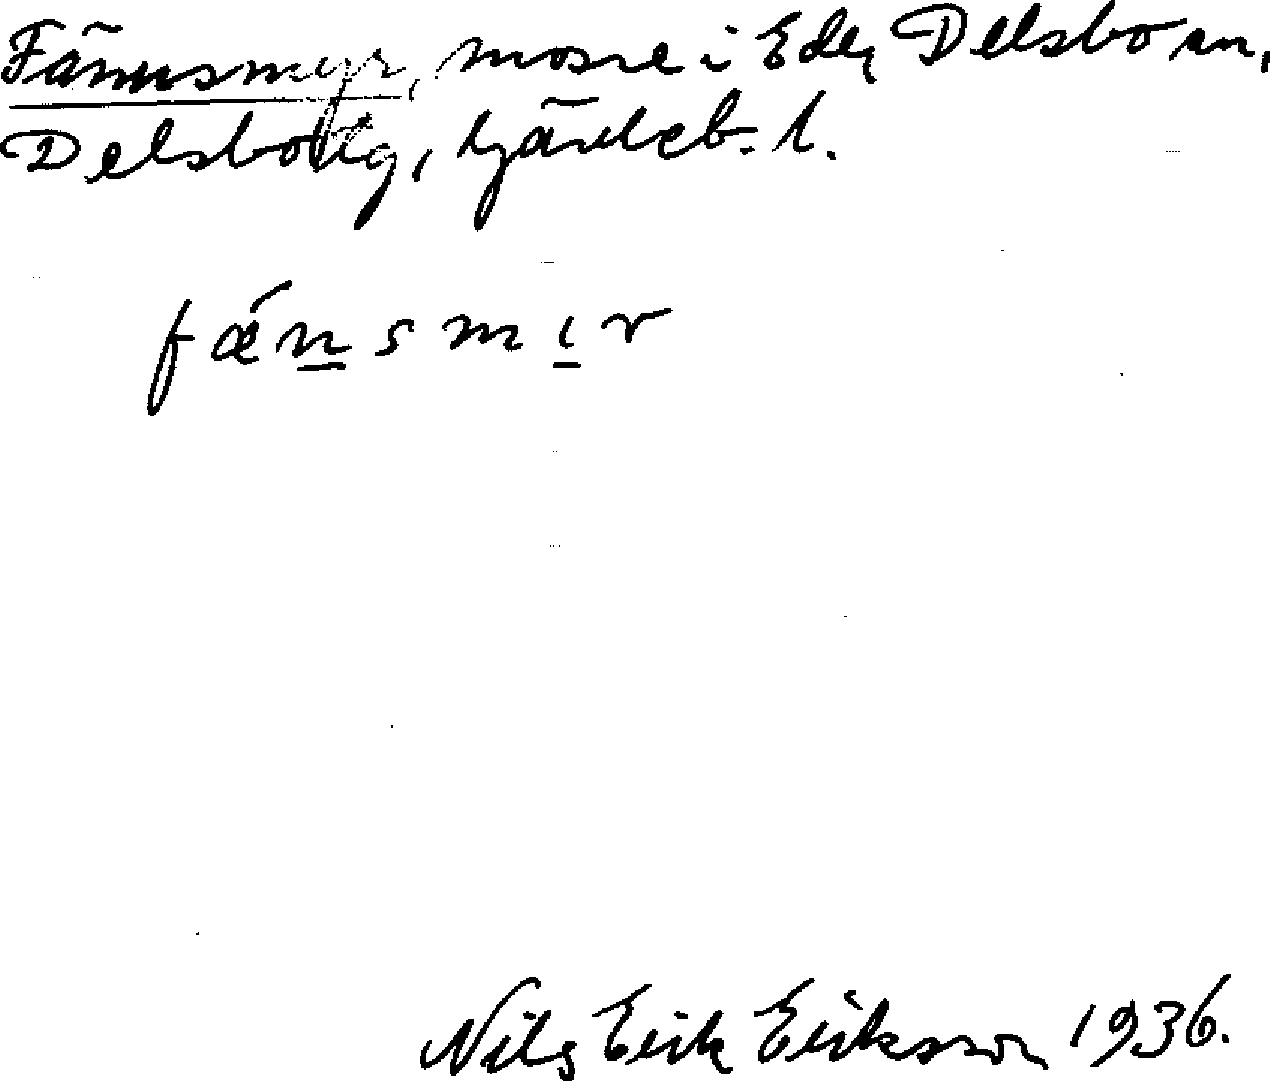 Fännsmyr, mosse i Ede, Delsbo sn,
Delsbo tg, Gävleb. l.
fǽnsmır
Nils Erik Eriksson 1936.